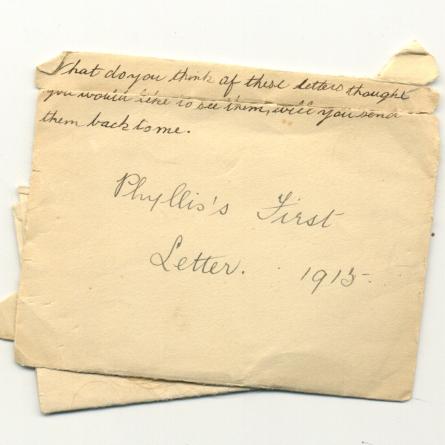 What do you think of these letters thought
you would like to see them, will you send
them back to me.
Phyllis's First
Letter. 1915.